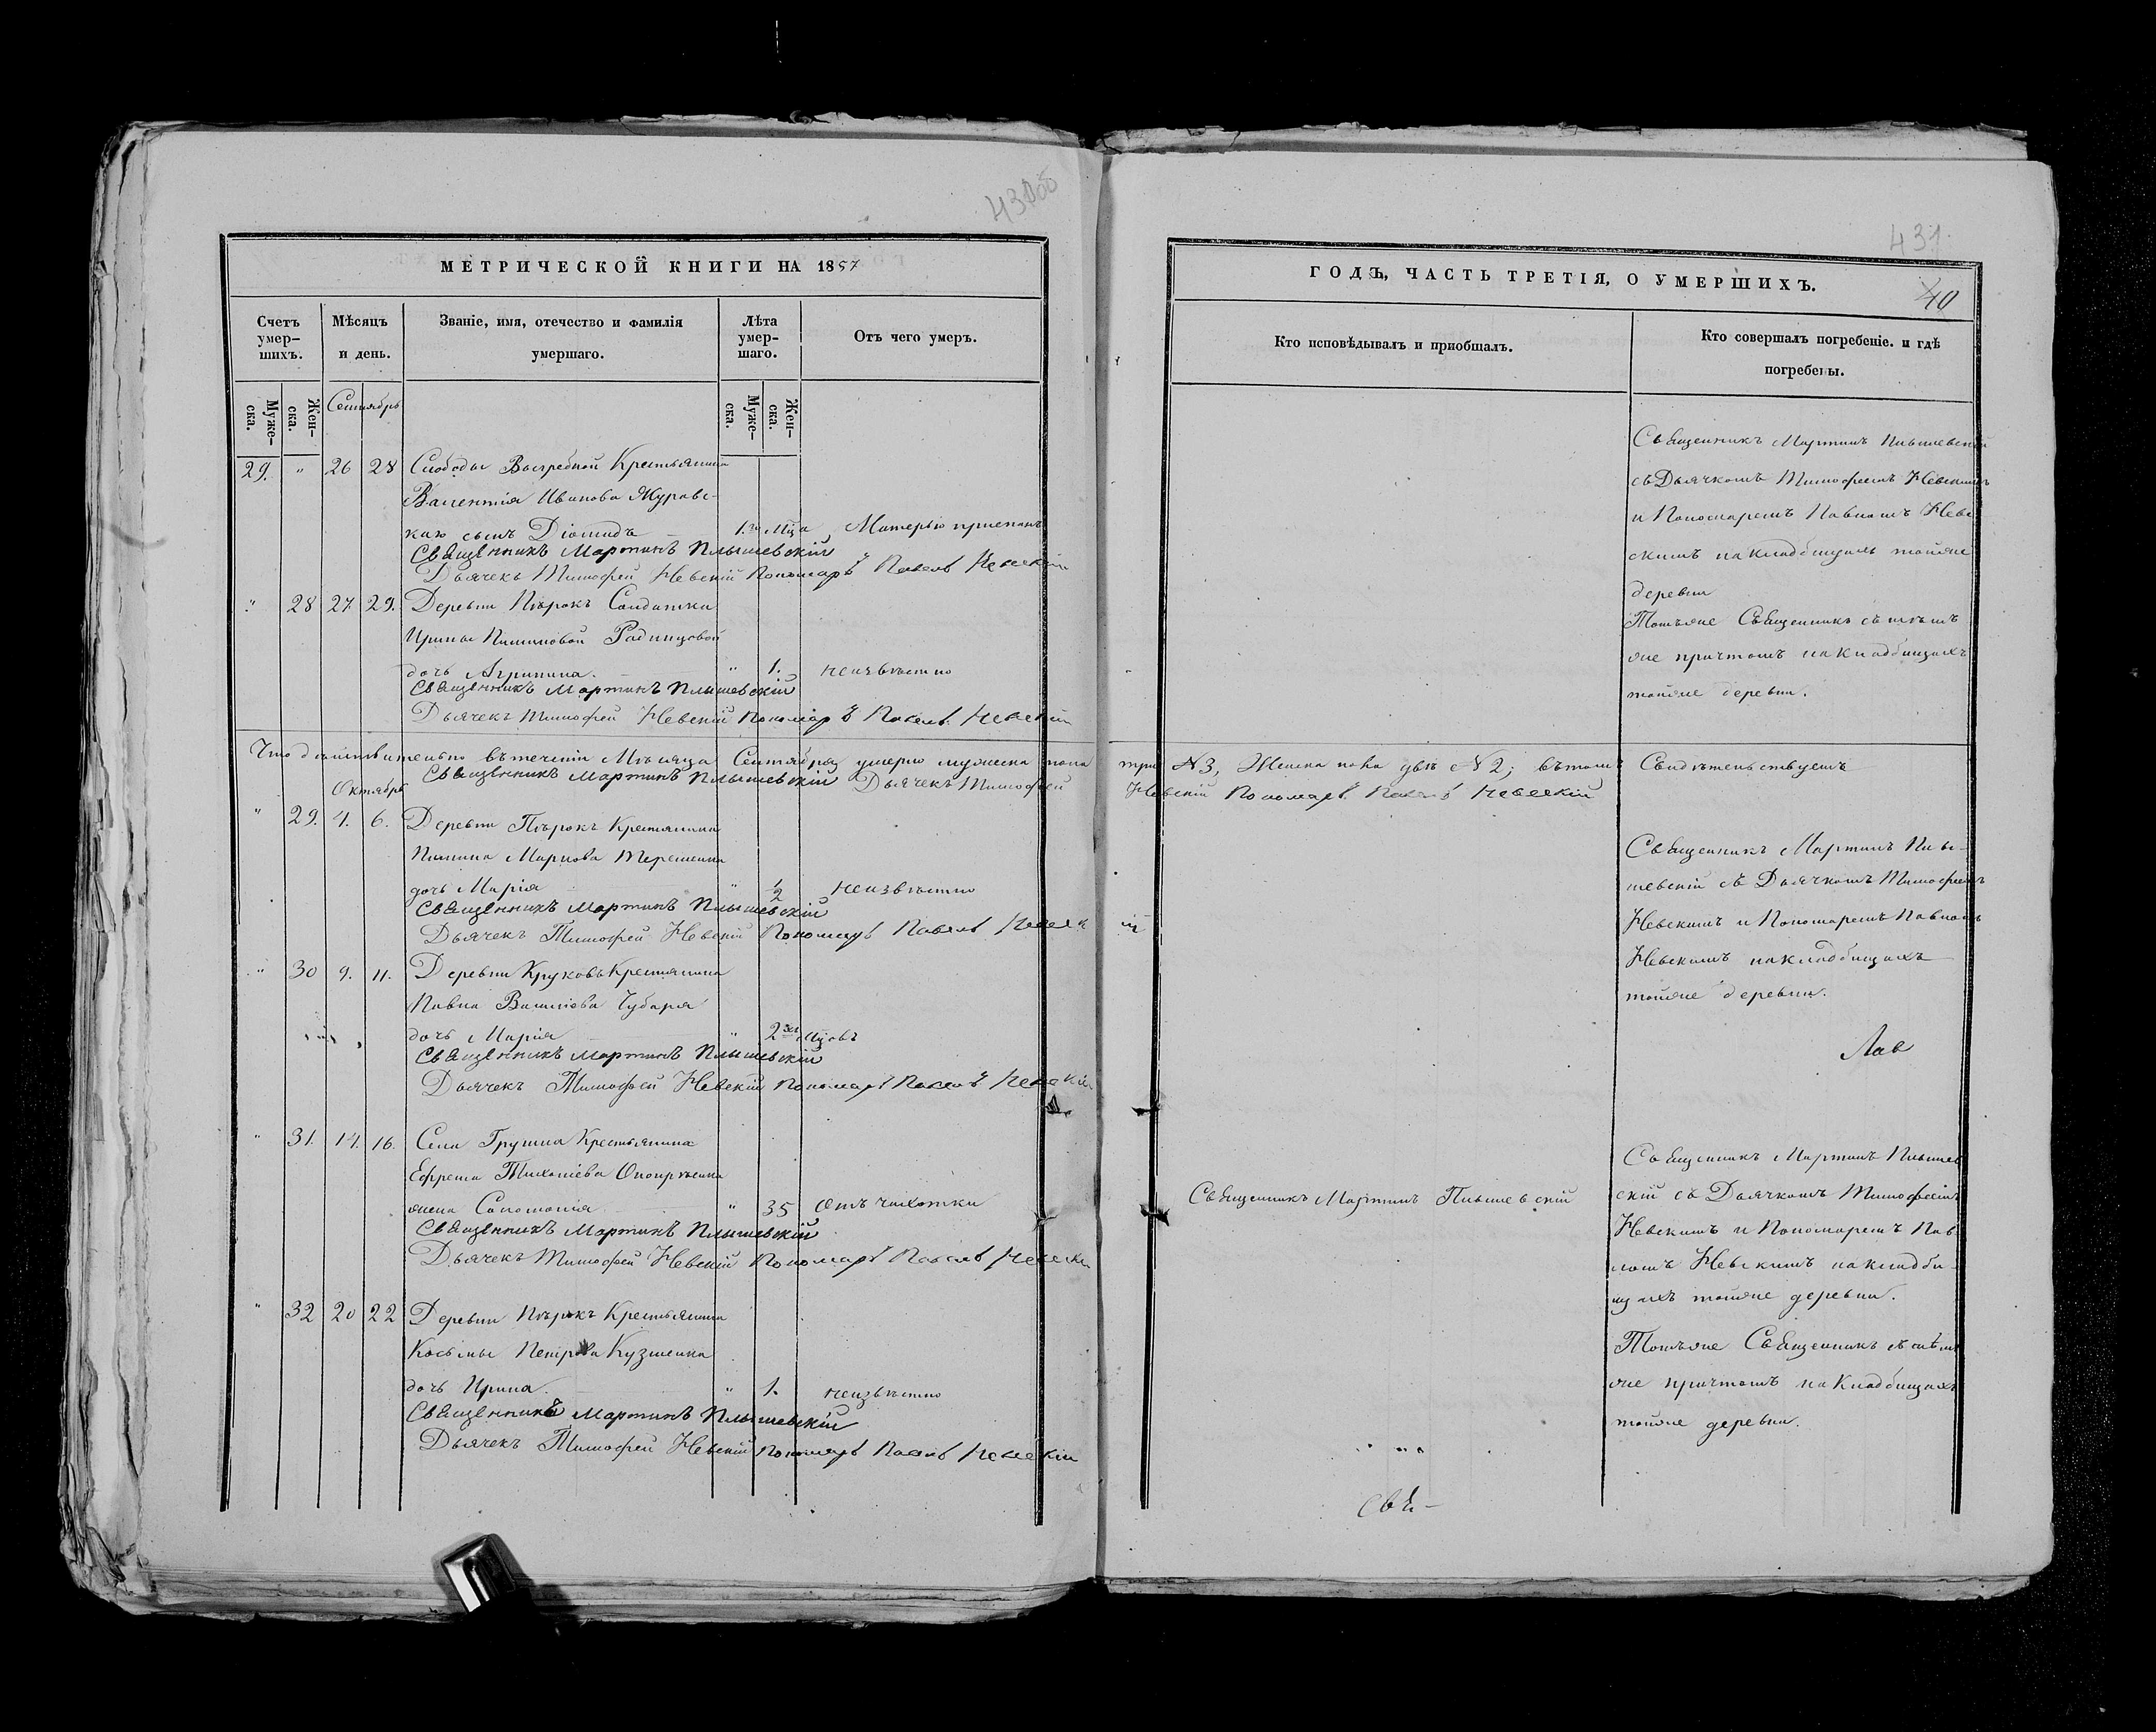 430об
МЕТРИЧЕСКОЙ КНИГИ НА 1857
Счетъ умер-шихъ.
Мѣсяцъ и день.
Званіе, имя, отечество и фамилія умершаго.
Лѣта умер-шаго.
Отъ чего умеръ.
Муже-ска.
Жен-ска.
Сентябрь
Муже-ска.
Жен-ска.
29. " 26 28 Слободы Выгребной Крестьянина
Валентія Иванова Журавс-
каго сынъ Діомидъ 1.го Мца Матерью приспанъ
Священникъ Мартинъ Плышевскій
Дьячекъ Тимофей Невскій Пономарь Павелъ Невскій
" 28 27. 29. Деревни Пѣрокъ Солдатки
Ирины Пиминовой Радицовой
дочь Агрипина. " 1. неизвѣстно
Священникъ Мартинъ Плышевскій
Дьячекъ Тимофей Невскій Пономарь Павелъ Невскій
Что дѣйствительно въ теченіи Мѣсяца Сентября умерло мужеска пола
Священникъ Мартинъ Плышевскій Дьячекъ Тимофей
Октябрь
" 29. 4. 6. Деревни Пѣрокъ Крестянина
Пимина Маркова Терешенка
дочь Марія " 1/2 неизвѣстно
Священникъ Мартинъ Плышевскій
Дьячекъ Тимофей Невскій Пономарь Павелъ Невск
" 30 9. 11. Деревни Круковъ Крестянина
Павла Василіева Чубаря
дочь Марія " 2хъ Мцовъ
Священникъ Мартинъ Плышевскій
Дьячекъ Тимофей Невскій Пономарь Павелъ Невскій
" 31. 14. 16. Села Грушна Крестьянина
Ефрема Тихоніева
жена Соломонія " 35 Отъ чахотки
Священникъ Мартинъ Плышевскій
Дьячекъ Тимофей Невскій Пономарь Павелъ Невски
" 32 20 22 Деревни Пѣрокъ Крестьянина
Косьмы Петрова Кузменка
дочь Ирина. " 1. неизвѣстно
Священникъ Мартинъ Плышевскій
Дьячекъ Тимофей Невскій Пономарь Павелъ Невскій
431.
ГОДЪ, ЧАСТЬ ТРЕТІЯ, О УМЕРШИХЪ.
40
Кто исповѣдывалъ и пріобщалъ.
Кто совершалъ погребеніе. и гдѣ погребены.
Священникъ Мартинъ Плышевскій
съ Дьячкомъ Тимофеемъ Невскимъ
и Пономаремъ Павломъ Нев
скимъ на кладбищахъ тойже
деревни
Тотъже Священникъ съ тѣмъ
же причтомъ на кладбищахъ
тойже деревни.
три №3, Женска пола двѣ №2; въ томъ Свидѣтельствуемъ
Невскій Пономарь Павелъ Невскій
Священникъ Мартинъ Плы-
шевскій съ Дьячкомъ Тимофеемъ
ій Невскимъ и Пономаремъ Павломъ
Невскимъ на кладбищахъ
тойже деревни.
Лав
Священникъ Мартинъ Плышев
Священникъ Мартинъ Плышевскій скій съ Дьячкомъ Тимофеемъ
Невскимъ и Пономаремъ Пав
ломъ Невскимъ на кладби
щахъ тойже деревни.
Тотъже Священникъ съ тѣмъ
же причтомъ на Кладбищахъ
тойже деревни.
Свя-